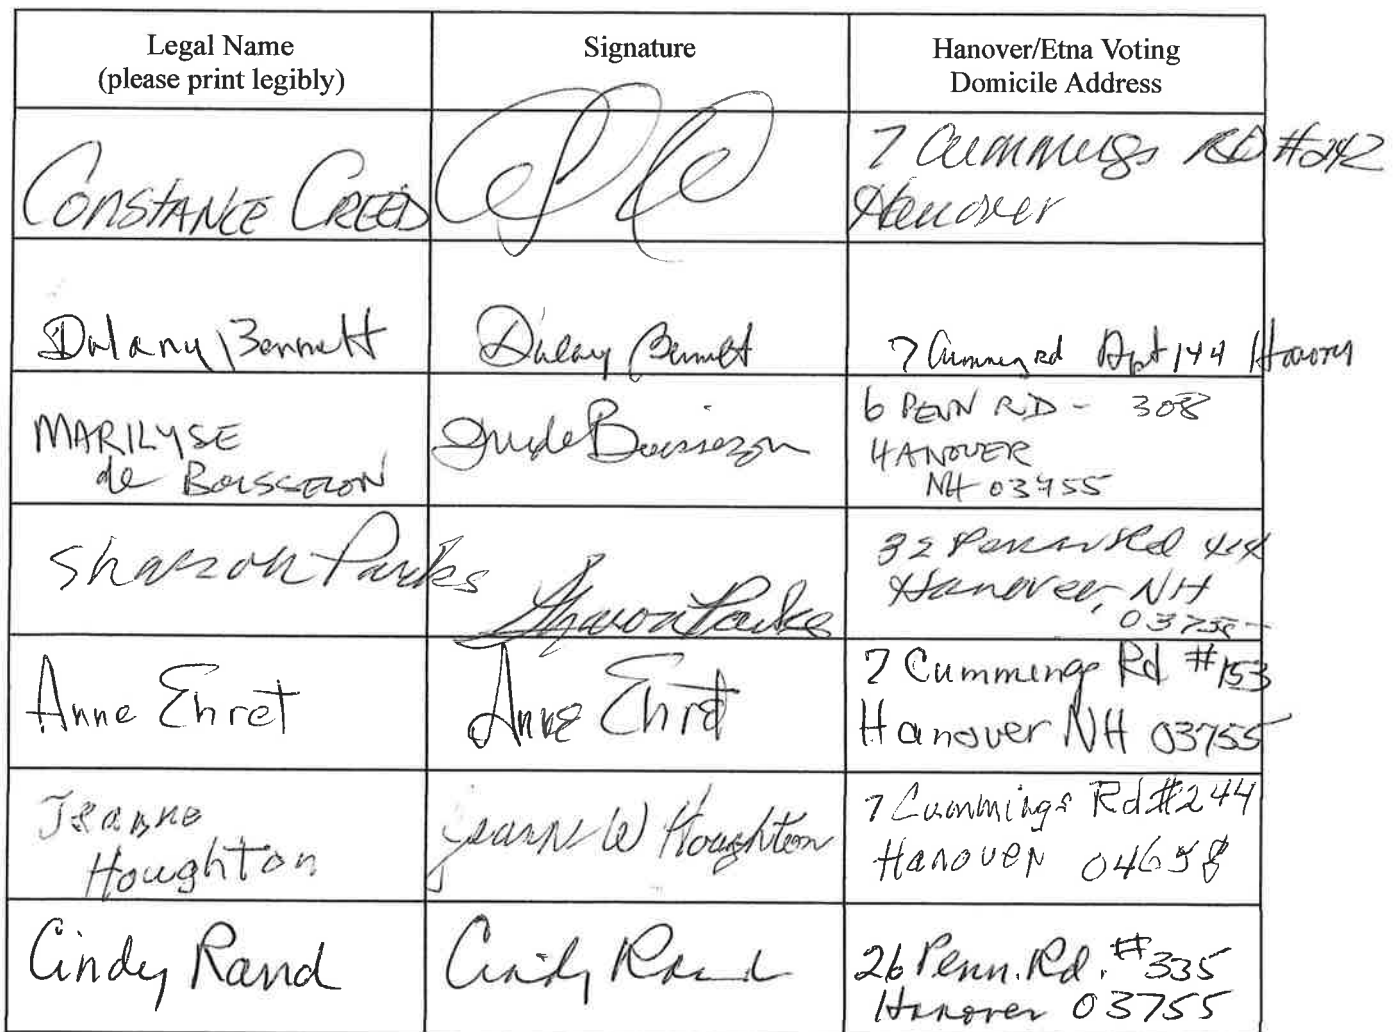 Legal Name
(please print legibly)
Signature
Hanover/Etna Voting
Domicile Address
CONSTANCE CREED
7 Cummings RD #242
Hanover
Dulany Bennett
Dulany Bennett
7 Cummings rd Apt 144 Hanover
MARILYSE
de BOISSEZON
de Boissezon
6 PENN RD - 308
HANOVER
NH 03755
Sharon Parks
Sharon Parks
32 Penn Rd
Hanover, NH
03755
Anne Ehret
Anne Ehret
7 Cummings Rd #153
Hanover NH 03755
Jeanne
Houghton
Jeanne W Houghton
7 Cummings Rd #244
Hanover
Cindy Rand
Cindy Rand
26 Penn. Rd. #335
Hanover 03755